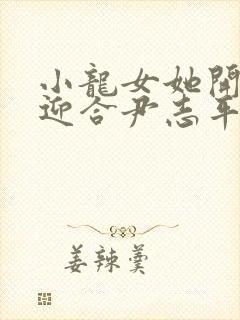 小龍女她開
迎合尹志平
姜辣羹